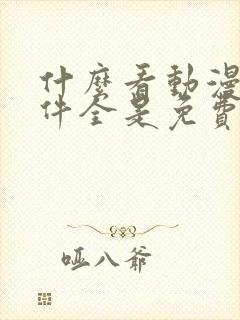 什麼看動漫
件全是免費
哑八爺